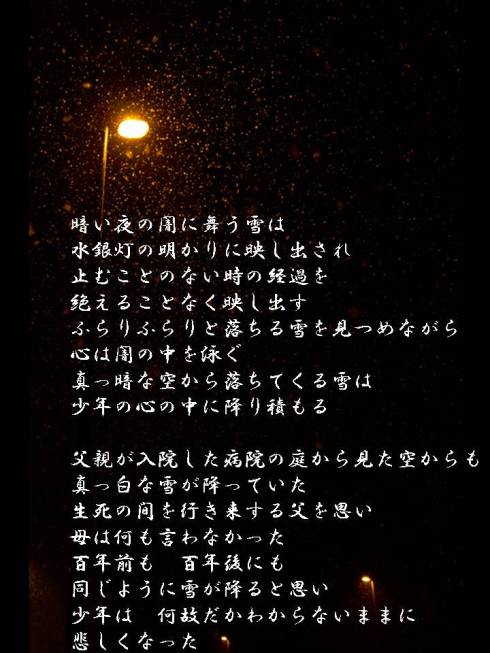 暗い夜の闇に舞う雪は
水銀灯の明かりに映し出され
止むことのない時の経過を
絶えることなく映し出す
ふらりふらりと落ちる雪を見つめながら
心は闇の中を泳ぐ
真っ暗な空から落ちてくる雪は
少年の心の中に降り積もる
父親が入院した病院の庭から見た空からも
真っ白な雪が降っていた
生死の間を行き来する父を思い
母は何も言わなかった
百年前も　百年後にも
同じように雪が降ると思い
少年は　何故だかわからないままに
悲しくなった